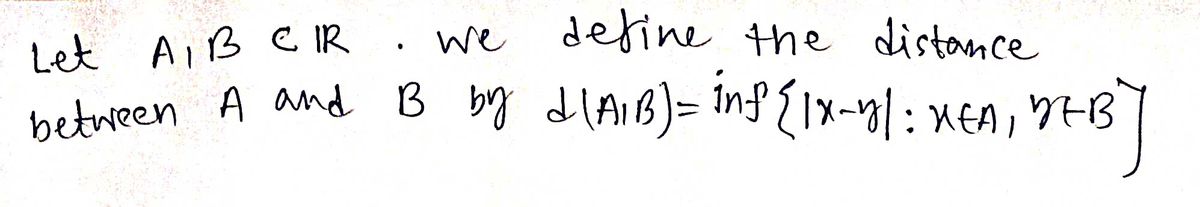 Let A, B ⊂ ℝ . we define the distance
between A and B by d(A,B)= inf {|x-y| : x∈A, y∈B}